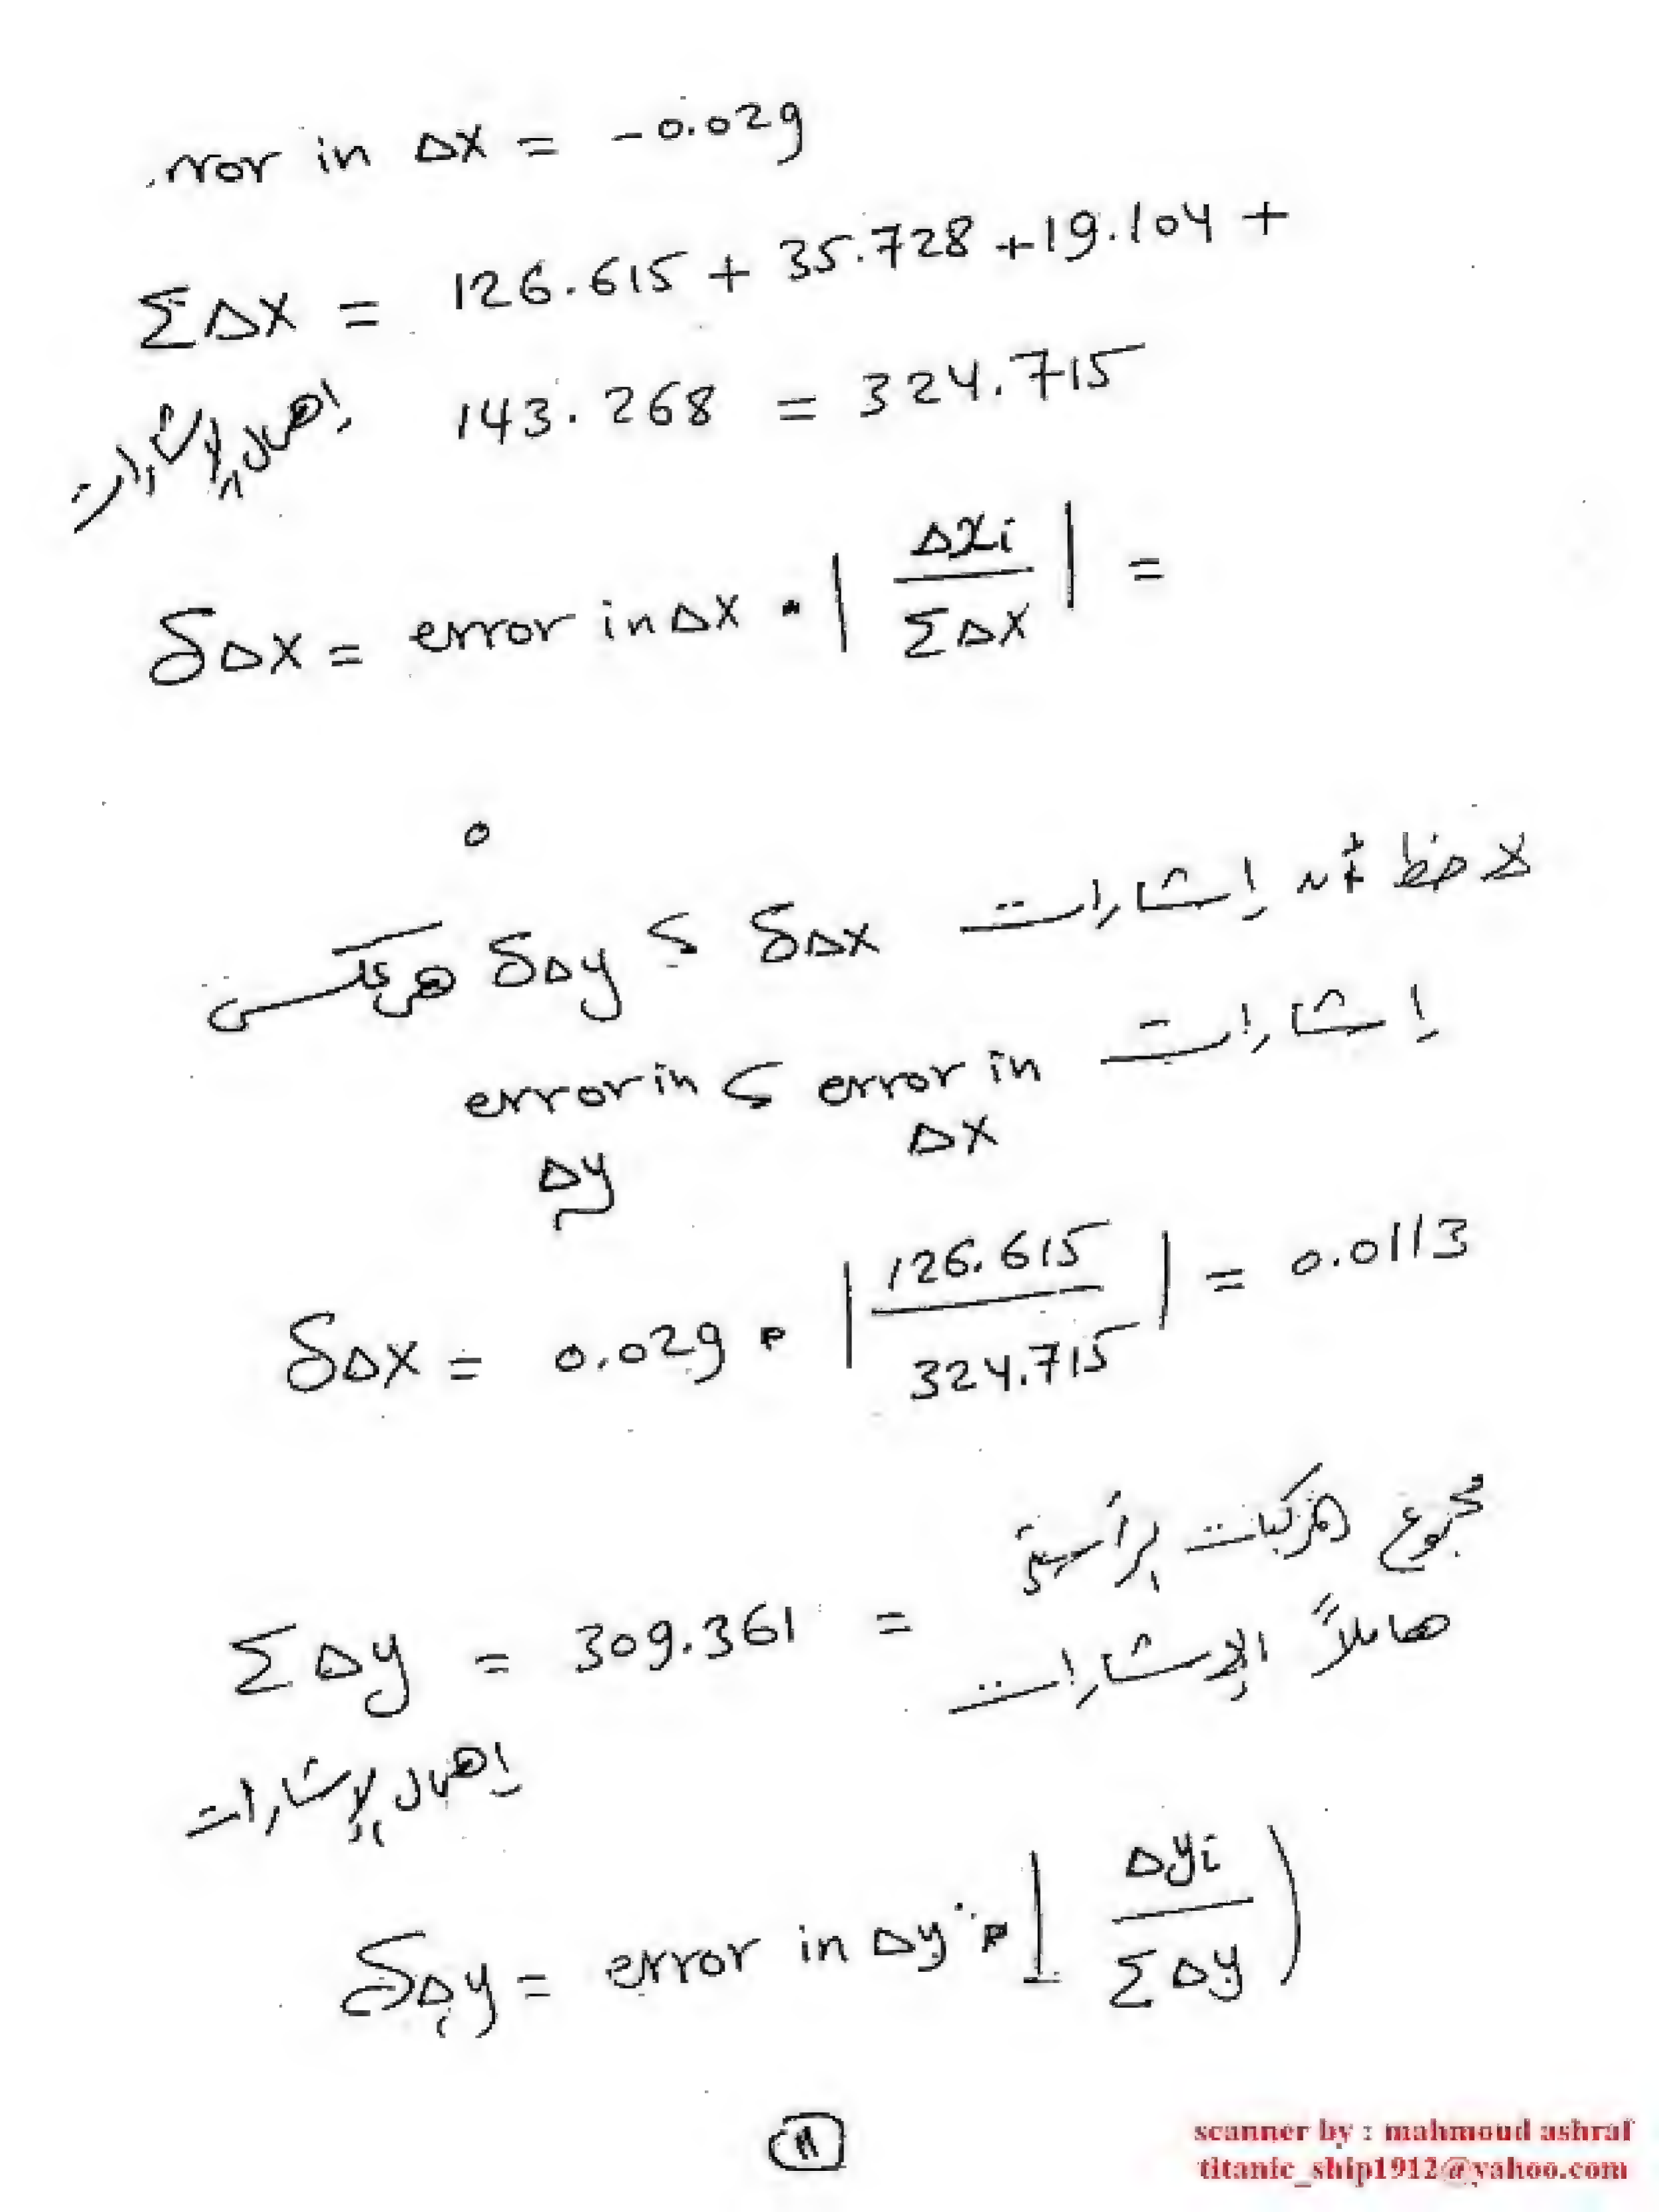 rror in Δx = -0.029
ΣΔx = 126.615 + 35.728 + 19.104 +
143.268 = 324.715
إهمال الإشارات
δΔx = error in Δx * | Δxi / ΣΔx | =
لاحظ أن إشارات δΔx و δΔy هي عكس
إشارات error in Δx و error in Δy
δΔx = 0.029 * | 126.615 / 324.715 | = 0.0113
ΣΔy = 309.361 = مجموع مركبات رأسية
هاملاً الإشارات
إهمال الإشارات
δΔy = error in Δy * | Δyi / ΣΔy )
11
scanner by : mahmoud ashraf
titanic_ship1912@yahoo.com